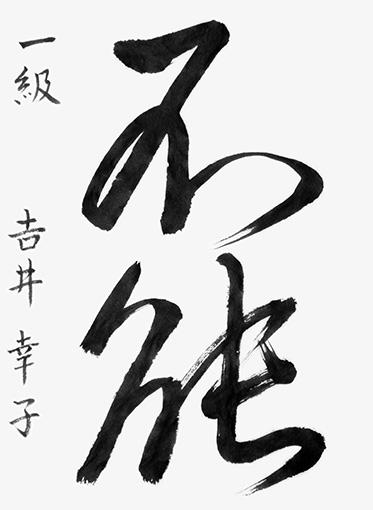 不能
一級 吉井 幸子